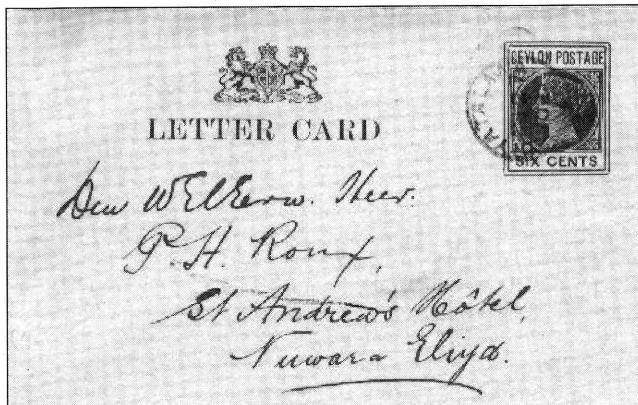 CEYLON POSTAGE
SIX CENTS
LETTER CARD
Den WElEerw. Heer.
P. H. Roux,
St Andrew's Hôtel,
Nuwara Eliya.